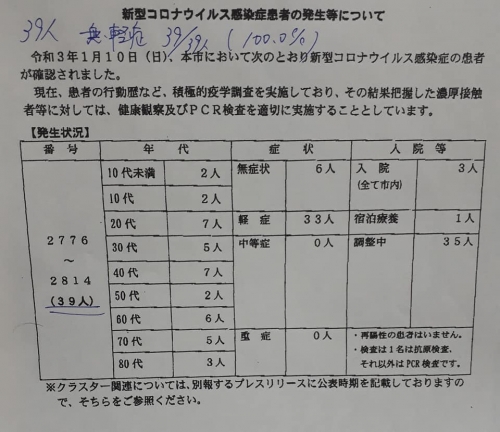 新型コロナウイルス感染症患者の発生等について
39人 無軽症 39/39人 (100.0%)
令和3年1月10日(日)、本市において次のとおり新型コロナウイルス感染症の患者
が確認されました。
現在、患者の行動歴など、積極的疫学調査を実施しており、その結果把握した濃厚接触
者等に対しては、健康観察及びPCR検査を適切に実施することとしています。
【発生状況】
番号 年代 症状 入院等
2776
~
2814
(39人)
10代未満 2人
10代 2人
20代 7人
30代 5人
40代 7人
50代 2人
60代 6人
70代 5人
80代 3人
無症状 6人
軽症 33人
中等症 0人
重症 0人
入院 3人
(全て市内)
宿泊療養 1人
調整中 35人
・再陽性の患者はいません。
・検査は1名は抗原検査、
それ以外はPCR検査です。
※クラスター関連については、別報するプレスリリースに公表時期を記載しておりますの
で、そちらをご参照ください。